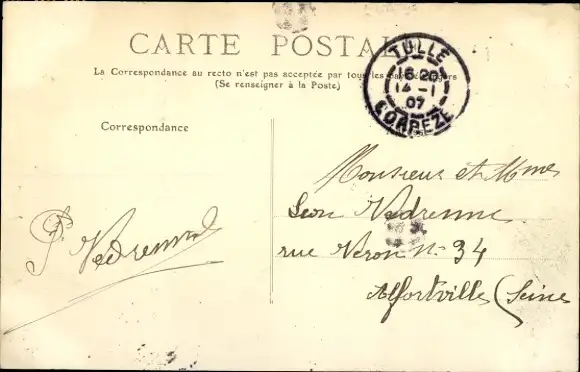 CARTE POSTALE
La Correspondance au recto n'est pas acceptée par tous les pays étrangers
(Se renseigner à la Poste)
TULLE
16 20
14 - 1
07
CORREZE
Correspondance
Monsieur et Mmes
Léon Vedrenne
rue Véron No 34
Alfortville (Seine
P. Vedrenne